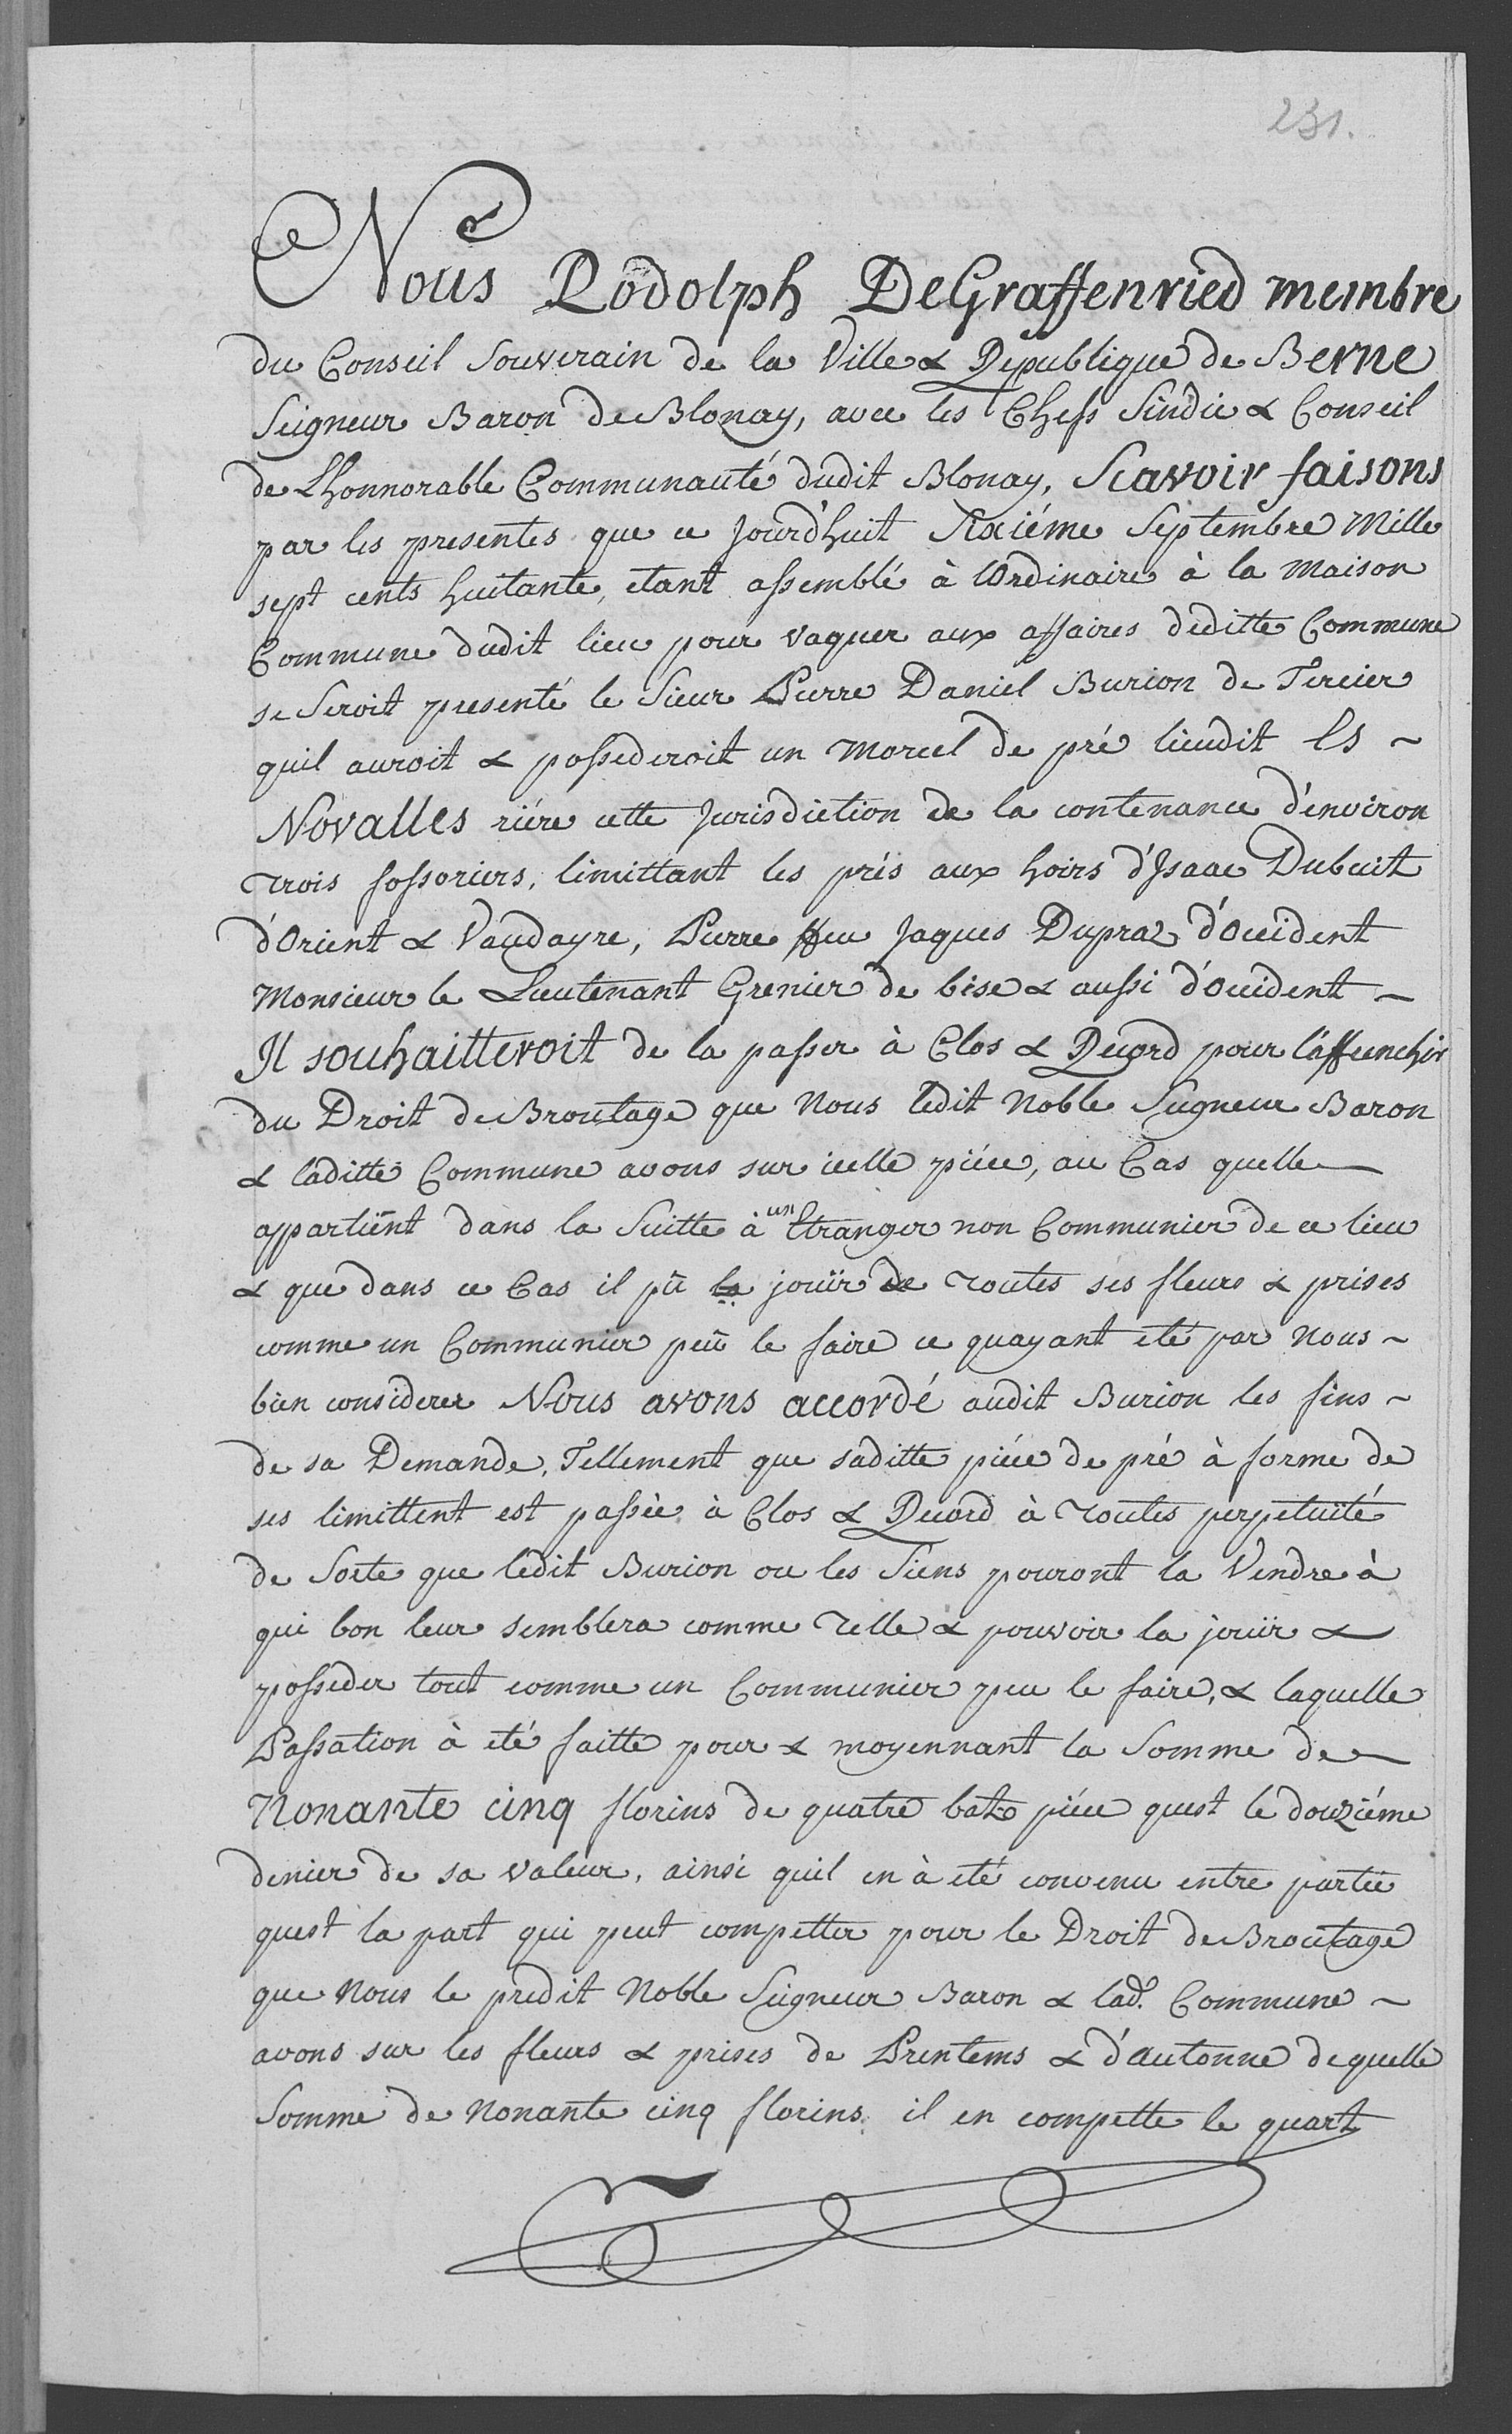 231.
Nous Rodolph DeGraffenried membre
du Conseil Souverain de la Ville & Republique de Berne
Seigneur Baron de Blonay, avec les Chefs Sindic & Conseil
de Lhonnorable Communauté dudit Blonay, Scavoir faisons
par les presentes que ce jourd'huit Sixiéme Septembre Mille
sept cents huitante, etant assemblé à lOrdinaire à la maison
Commune dudit lieu pour vaquer aux affaires deditte Commune
se Seroit presenté le Sieur Pierre Daniel Burion de Tercier
quil auroit & possederoit un morcel de pré lieudit Es ~
Novalles riére cette Jurisdiction de la contenance d'environ
trois fossoriers, limittant les prés aux hoirs d'Isaac Dubuit
d'Orient & Vaudayre, Pierre ffeu Jaques Dupraz d'Occident
Monsieur le Lieutenant Grenier de bise & aussi d'Occident ~
Il souhaitteroit de la passer à Clos & Record pour l'affrenchir
du Droit de Broutage que Nous ledit Noble Seigneur Baron
& laditte Commune avons sur icelle piéce, au Cas quelle
appartiënt dans la Suitte à un Etranger non Communier de ce lieu
& que dans ce Cas il pü la jouïr de toutes ses fleurs & prises
comme un Communier peü le faire ce quayant eté par Nous ~
bien considerer Nous avons accordé audit Burion les fins ~
de sa Demande, Tellement que saditte piéce de pré à forme de
ses limittent est passèe à Clos & Record à toutes perpetuité
de Sorte que ledit Burion ou les Siens pouront la Vendre à
qui bon leur semblera comme telle & pouvoir la jouïr &
posseder tout comme un Communier peu le faire, & laquelle
Passation à eté faitte pour & moyennant la Somme de
Nonante cinq florins de quatre batz piéce quest le douziéme
denier de sa valeur, ainsi quil en à eté convenu entre partie
quest la part qui peut competter pour le Droit de Broutage
que Nous le predit Noble Seigneur Baron & lad.e Commune ~
avons sur les fleurs & prises de Printems & d'autonne dequelle
Somme de Nonante cinq florins il en compette le quart